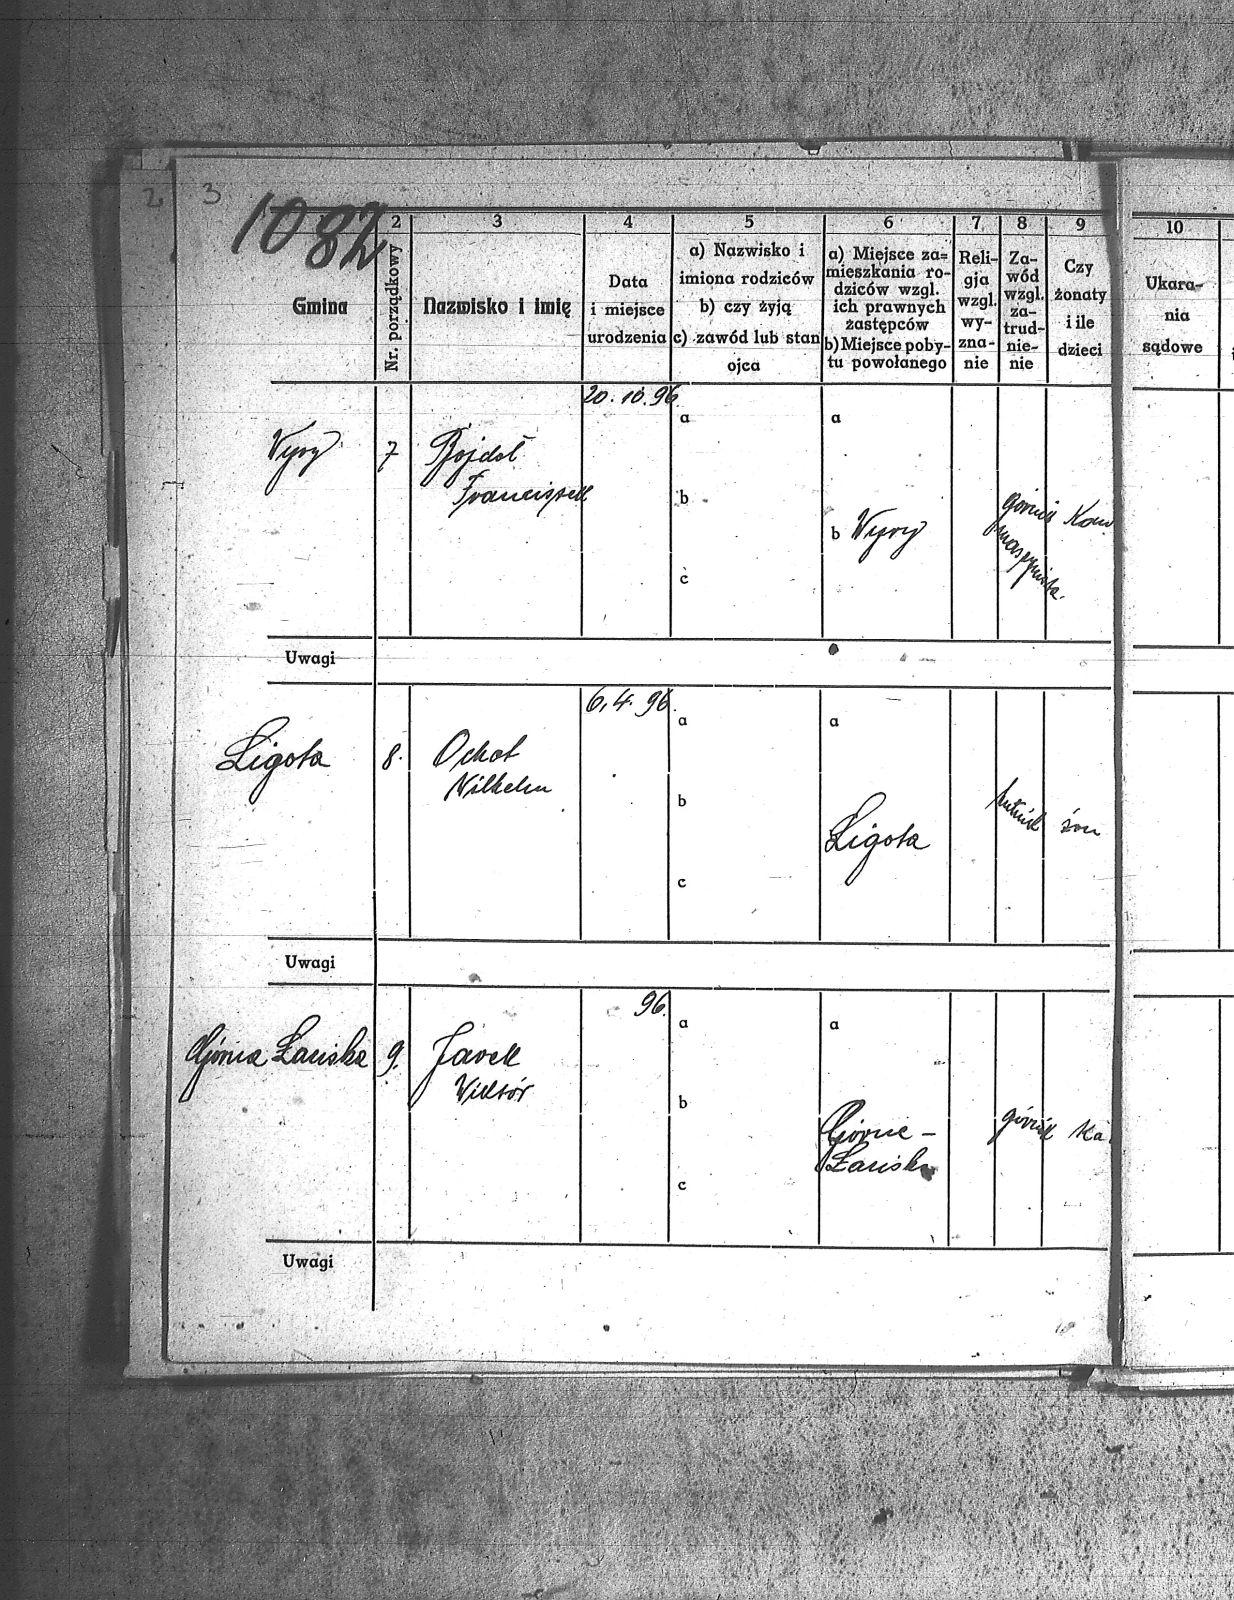 2 3
1082
2 3 4 5 6 7 8 9 10
Gmina
Nr. porządkowy
Nazwisko i imię
Data
i miejsce
urodzenia
a) Nazwisko i
imiona rodziców
b) czy żyją
c) zawód lub stan
ojca
a) Miejsce za=
mieszkania ro-
dziców wzgl.
ich prawnych
zastępców
b) Miejsce poby-
tu powołanego
Reli-
gja
wzgl.
wy-
zna-
nie
Za-
wód
wzgl.
za-
trud-
nie-
nie
Czy
żonaty
i ile
dzieci
Ukara-
nia
sądowe
20.10.96
a a
Wyry 7 Bojdoł
Franciszek
b
b Wyry
górnik
maszynista.
Kaw
c
Uwagi
6.4.96.
a a
Ligota 8. Ochot
Wilhelm
b
Ligota
hutnik
żon
c
Uwagi
96.
a a
Górna Łaziska 9. Jarek
Wiktór
b
Górne-
Łaziska
górnik
Ka
c
Uwagi